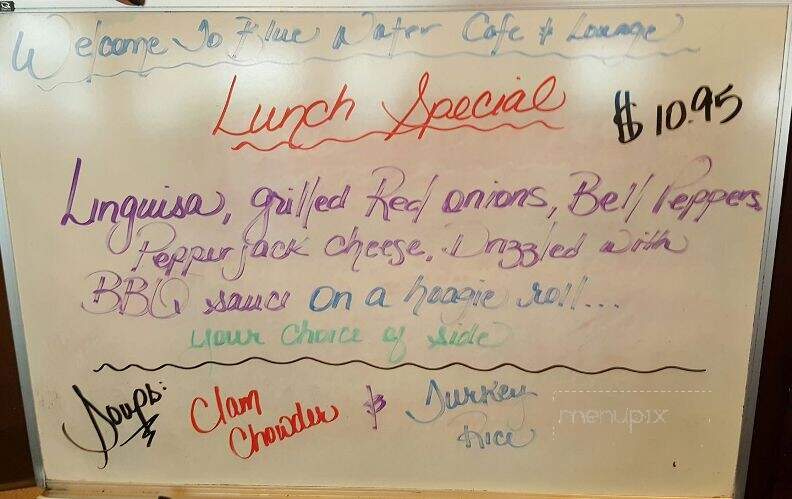 Welcome To Blue Water Cafe & Lounge
Lunch Special
$10.95
Linguisa, grilled Red onions, Bell Peppers,
Pepper jack cheese. Drizzled with
BBQ sauce on a hoagie roll...
your choice of side
Soups: Clam Chowder & Turkey Rice
menupix